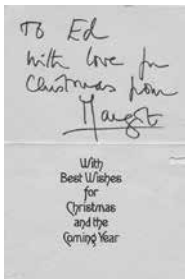 To Ed
with love for
Christmas from
Margot
With
Best Wishes
for
Christmas
and the
Coming Year